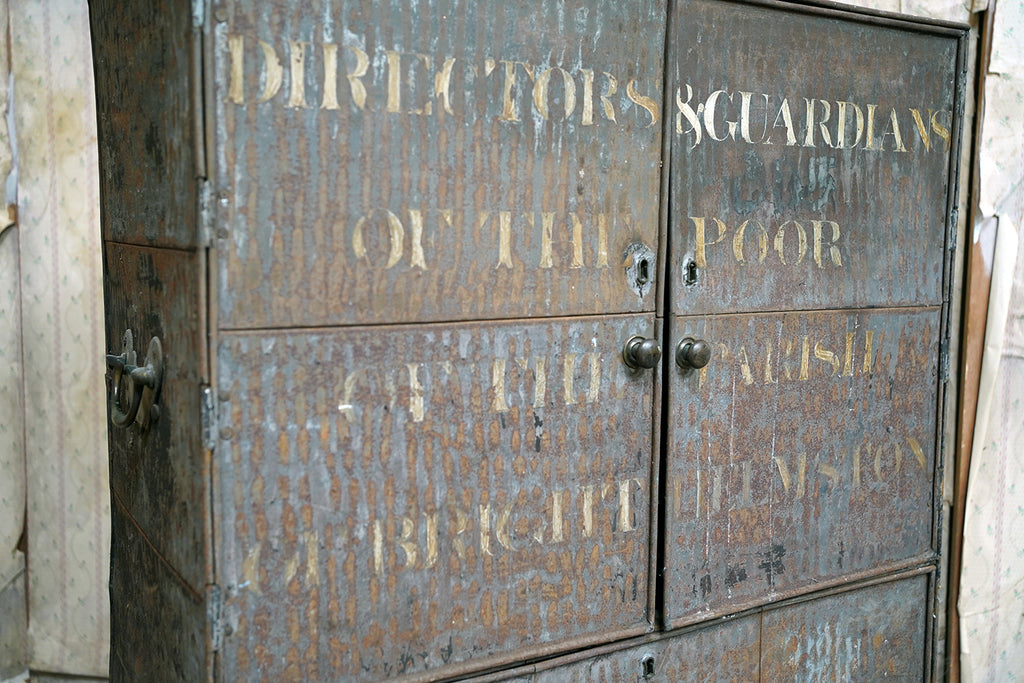 DIRECTORS & GUARDIANS
OF THE POOR
OF THE PARISH
BRIGHTHELMSTON